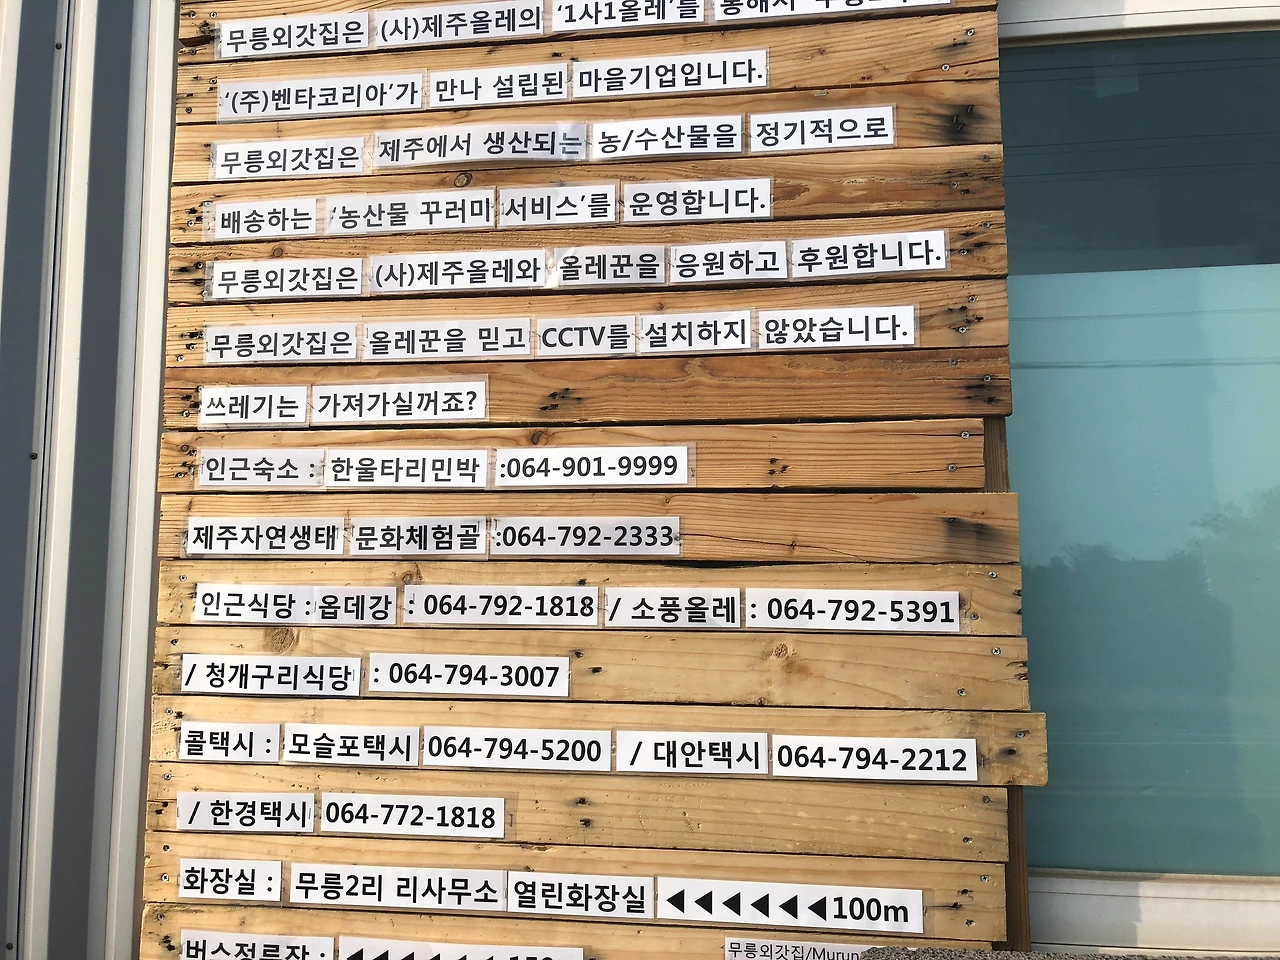 무릉외갓집은 (사)제주올레의 '1사1올레'를 통해서
'(주)벤타코리아'가 만나 설립된 마을기업입니다.
무릉외갓집은 제주에서 생산되는 농/수산물을 정기적으로
배송하는 '농산물 꾸러미 서비스'를 운영합니다.
무릉외갓집은 (사)제주올레와 올레꾼을 응원하고 후원합니다.
무릉외갓집은 올레꾼을 믿고 CCTV를 설치하지 않았습니다.
쓰레기는 가져가실꺼죠?
인근숙소 : 한울타리민박 :064-901-9999
제주자연생태 문화체험골 :064-792-2333
인근식당 : 옵데강 : 064-792-1818 / 소풍올레 : 064-792-5391
/ 청개구리식당 : 064-794-3007
콜택시 : 모슬포택시 064-794-5200 / 대안택시 064-794-2212
/ 한경택시 064-772-1818
화장실 : 무릉2리 리사무소 열린화장실 ◀◀◀◀◀◀100m
버스정류장 : ◀◀◀◀◀◀
무릉외갓집/Murun